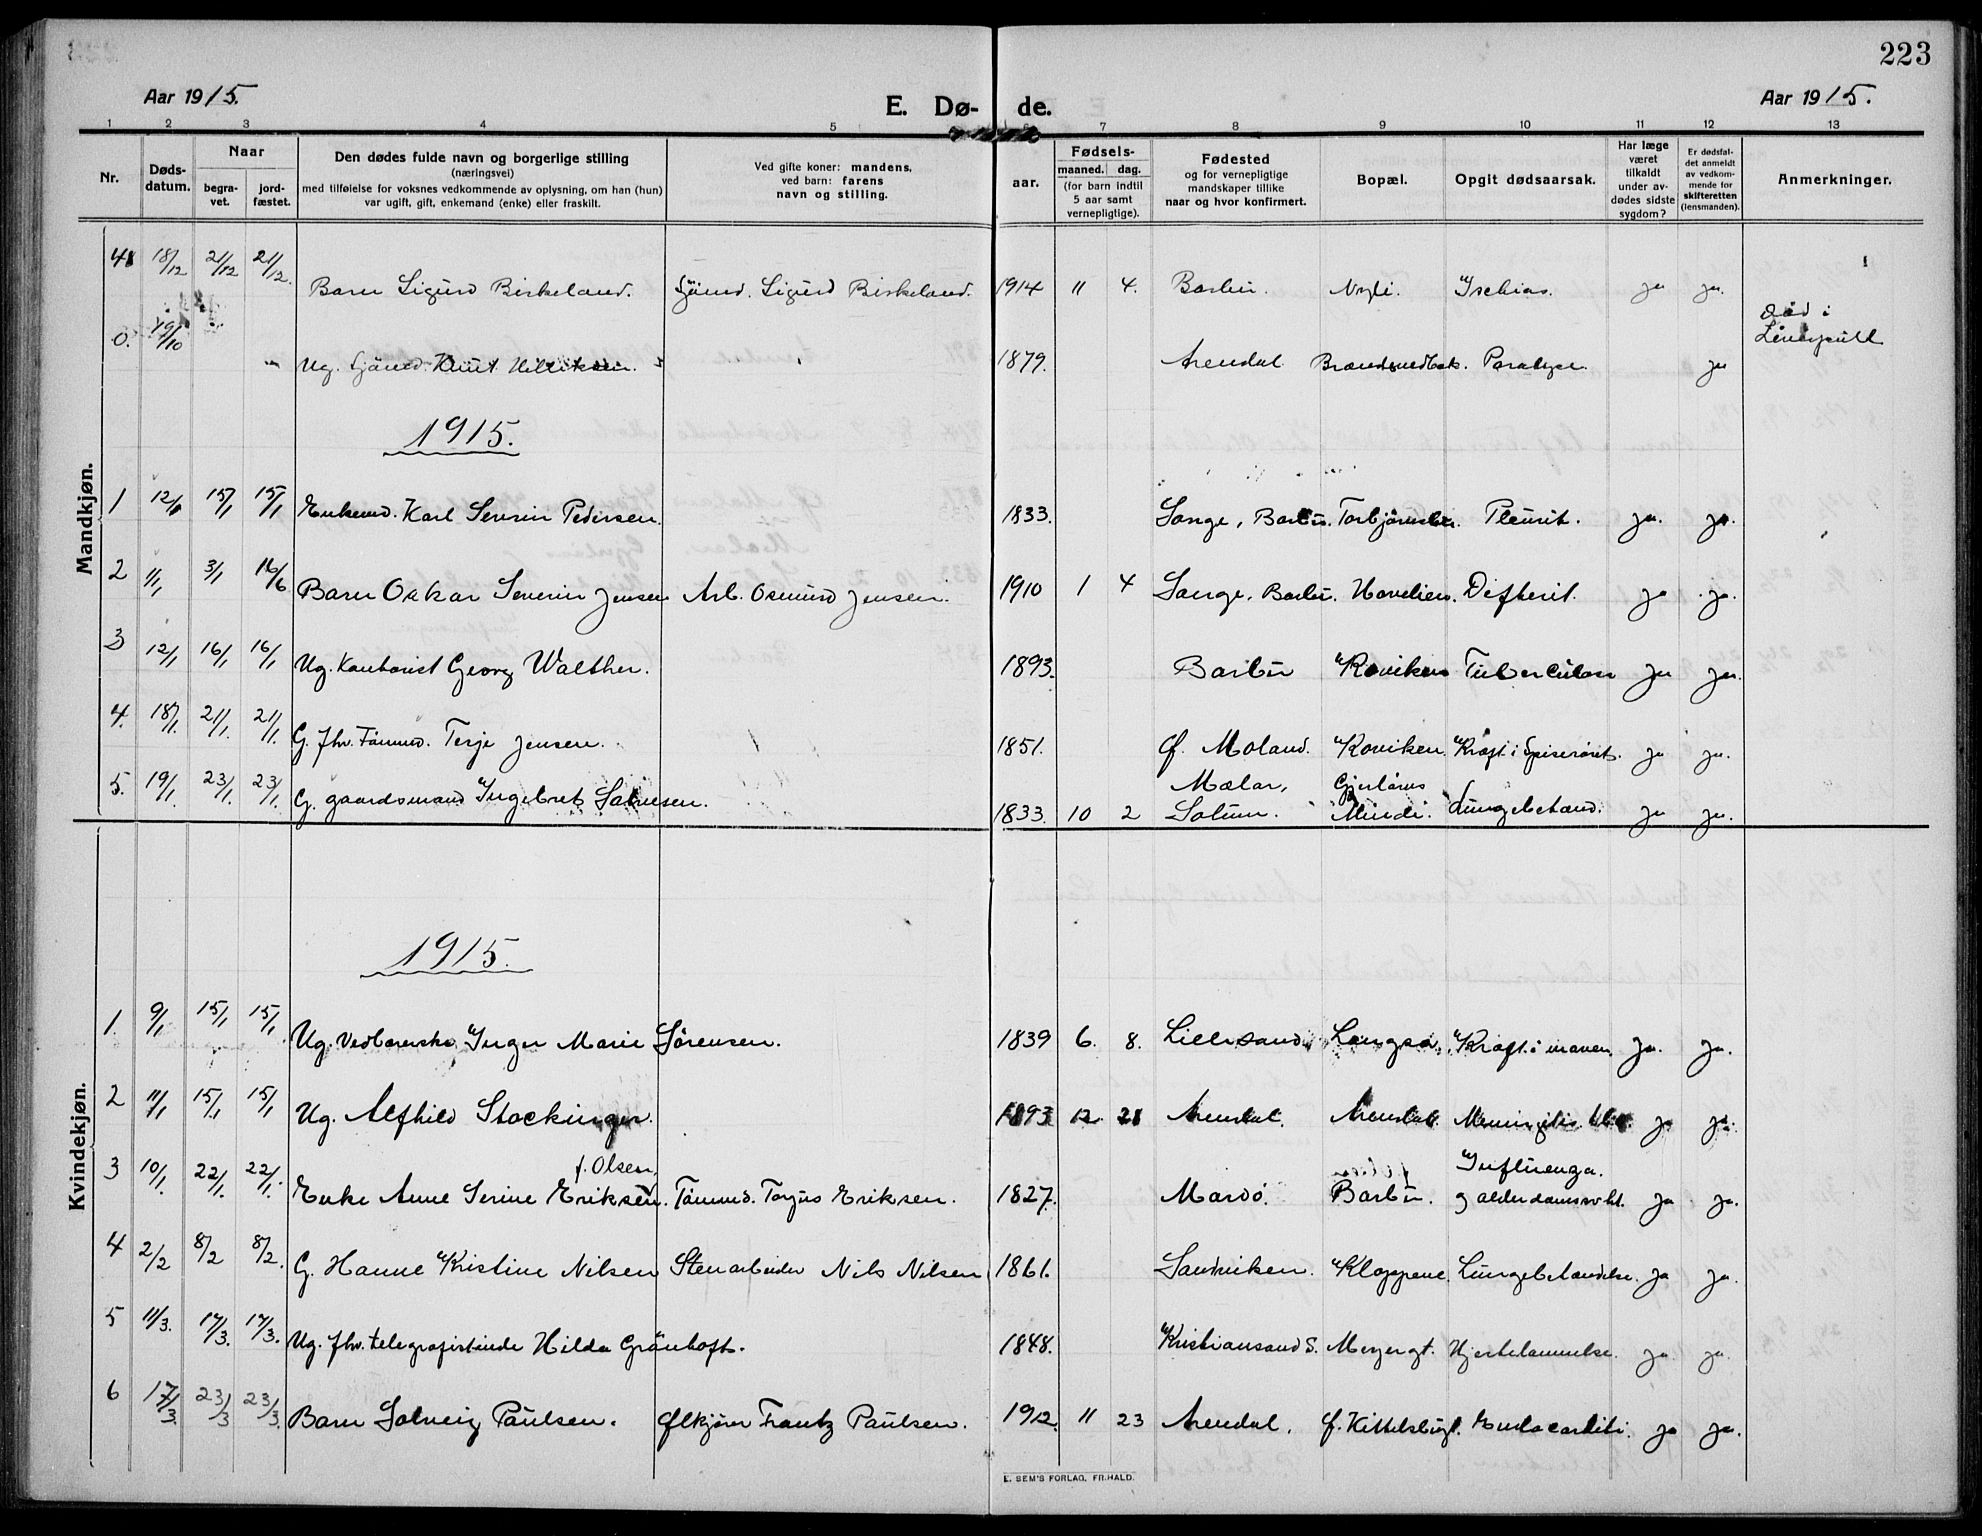 223
Aar 1915.
E. Dø- de.
Aar 1915.
1 2 3 4 5 6 7 8 9 10 11 12 13
Nr.
Døds-
datum.
Naar
begra-
vet.
jord-
fæstet.
Den dødes fulde navn og borgerlige stilling
(næringsvei)
med tilføielse for voksnes vedkommende av oplysning, om han (hun)
var ugift, gift, enkemand (enke) eller fraskilt.
Ved gifte koner: mandens,
ved barn: farens
navn og stilling.
aar.
Fødsels-
maaned. dag.
(for barn indtil
5 aar samt
vernepligtige).
Fødested
og for vernepligtige
mandskaper tillike
naar og hvor konfirmert.
Bopæl.
Opgit dødsaarsak.
Har læge
været
tilkaldt
under av-
dødes sidste
sygdom?
Er dødsfal-
det anmeldt
av vedkom-
mende for
skifteretten
(lensmanden).
Anmerkninger.
Mandkjøn.
48 18/12 21/12 21/12. Barn Sigurd Birkeland. Sjömd. Sigurd Birkeland. 1914 11 4. Barbu. Nyli. Ischias. ja ja.
0. 19/10 Ug. Sjömd. Knut 1879. Arendal Paralyse. ja Död i
1915.
1 15/1 15/1 Enkemd. Karl Severin Pedersen. 1833. Songe, Barbu. Pleurit. ja. ja.
2 1/1 3/1 16/6 Barn Oskar Severin Jensen Arb. Osmund Jensen. 1910 1 4 Songe, Barbu. Difterit. ja ja.
3 12/1 16/1 16/1 Ug. Kontorist Georg Walther. 1893. Barbu Koviken Tuberculose ja ja.
4. 18/1. 21/1. 21/1. G. fhv. Tömmd. Terje Jensen. 1851. Ø. Moland. Koviken. Kræft i Spiserøret. ja ja.
5. 19/1. 23/1. 23/1. G. gaardsmand Ingebret Salvesen. 1833. 10 2 Mælar, Solum. Lungebetænd. ja ja.
Kvindekjøn.
1915.
1. 9/1 15/1 15/1 Ug. Inger Marie Sørensen. 1839 6. 8. Lillesand. Langsæ. Kræft i maven. ja. ja.
2 11/1 15/1 15/1 Ug. Alfhild Stockinger. 1893 12 21 Arendal. Arendal. Meningitis ja ja.
3 10/1. 22/1. 22/1. Enke Anne Serine Eriksen f. Olsen. Tömmd. Torjus Eriksen. 1827. Mardö. Barbu. Influenza. og alderdomssvakh. ja ja.
4 2/2 8/2 8/2. G. Hanne Kristine Nilsen Stenarbeider Nils Nilsen 1861. Sandviken. Kloppene. Lungebetændelse. ja ja.
5 11/3. 17/3. 17/3. Ug. fhv. telegrafistinde Hilda Grönhoft. 1848. Kristiansand S. Hjertelammelse. ja. ja.
6 17/3. 23/3 23/3 Barn Solveig Paulsen. Ølkjører Frantz Paulsen. 1912. 11 23 Arendal. Ø. Kittelsbugt. Endocarditi. ja ja.
E. SEM'S FORLAG, FR.HALD.